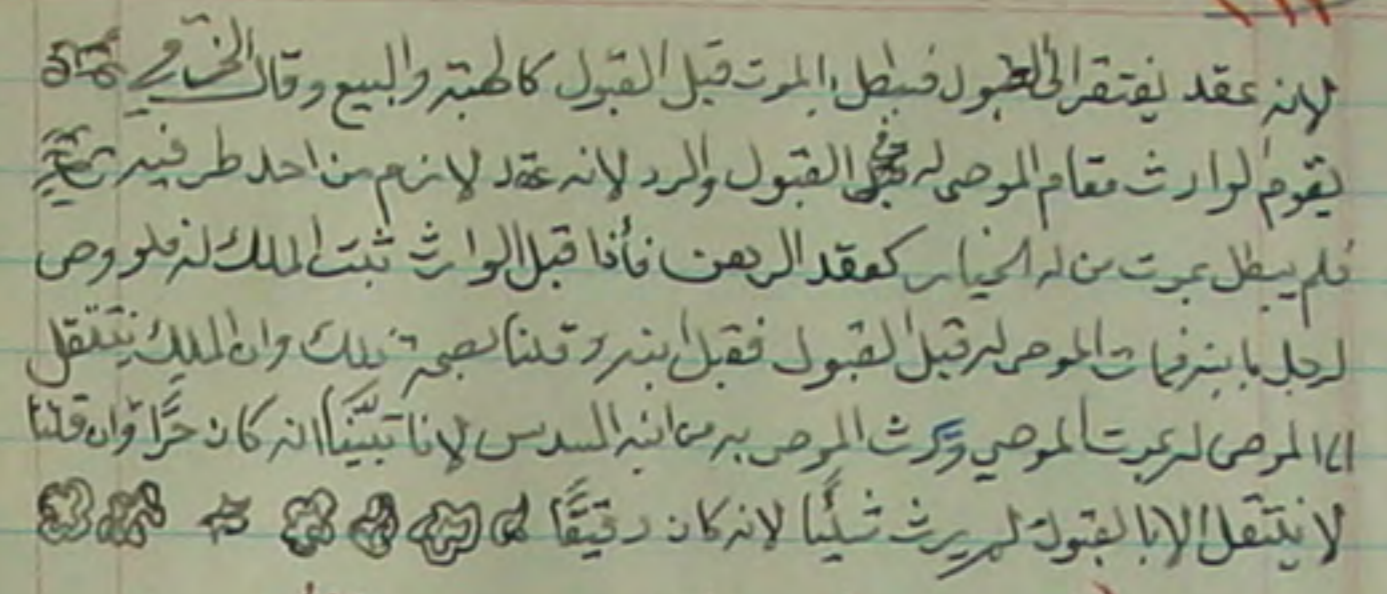 لانه عقد يفتقر الى القبول فبطل بالموت قبل القبول كالهبة والبيع وقال الخرقي
يقوم الوارث مقام الموصى له في القبول والرد لانه عقد لازم من احد طرفيه
فلم يبطل بموت من له الخيار كعقد الرهن فأذا قبل الوارث ثبت الملك له فلو وصى
لرجل بابنه فمات الموصى له قبل القبول فقبل ابنه وقلنا بصحة ذلك وان الملك ينتقل
الى الموصى له بموت الموصي وَرث الموصى به من ابيه السدس لانا تبيّنَّا انه كان حرًّا وان قلنا
لا ينتقل الا بالقبول لم يرث شيئًا لانه كان رقيقًا